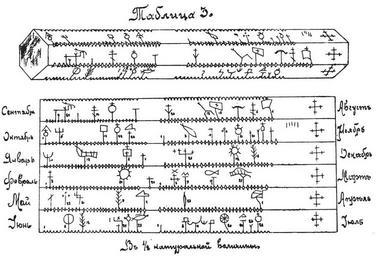 Таблица 3.
Сентябрь Августъ
Октябрь Ноябрь
Январь Декабрь
Февраль Мартъ
Май Апрель
Іюнь Іюль
Въ ½ натуральной величины.